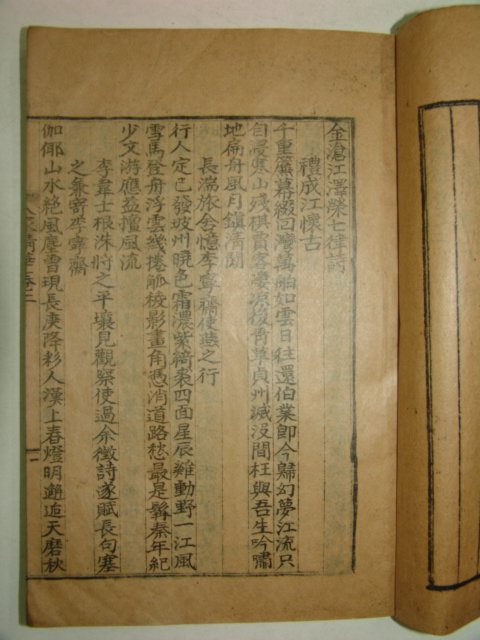 金滄江澤榮七律詩
禮成江懷古
千重簾幕綴回灣萬舶如雲日往還伯業即今歸幻夢江流只
自浸寒山殘棋賈客凄凉後靑草貞州滅沒間枉與吾生吟嘯
地商舟風月鎭淸閒
長湍旅舍憶李寧齋使燕之行
行人定已發坡州曉色霜濃紫綺裘四面星辰雞動野一江風
雪馬登舟浮雲幾捲觚稜影畫角憑消道路愁最是髥秦年紀
少文游應盡擅風流
李韋士根洙將之平壤見觀察使過余徵詩遂賦長句塞
之兼寄李寧齋
伽倻山水絶風塵曹現長庚降彩人漢上春燈明邂逅天磨秋